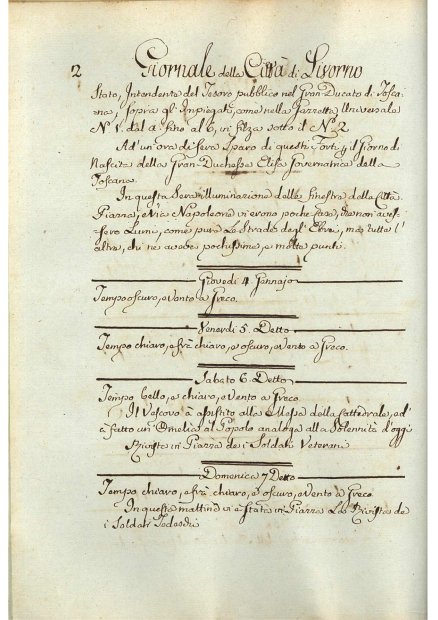 2 Giornale della Città di Livorno
Stato, Intendente del Tesoro pubblico nel Gran Ducato di Tosca-
na, sopra gl'Impiegati, come nella Gazzetta Universale
N.º 1. dal a fino al 6, in filza sotto il N.º 2
Ad un'ora di sera sparo di questi Forti p il Giorno di
Nascita della Gran-Duchessa Elisa Governatrice della
Toscana.
In questa Sera illuminazione delle finestre della Città
Piazza, e Via Napoleona vi erono poche Case, che non aves-
sero Lumi, come pure le Strade degl'Ebrei, ma tutta l'
altra, chi ne aveva pochissime, e molte punti.
Giovedì 4 Gennajo
Tempo oscuro, e Vento a Greco.
Venerdì 5. Detto
Tempo chiaro, e frà chiaro, e oscuro, e Vento a Greco.
Sabato 6. Detto
Tempo bello, e chiaro, e Vento a Greco.
Il Vescovo à assistito alla Messa della Cattedrale, ed
à fatto un Omelia al Popolo analoga alla Solennità d'oggi
Rivista in Piazza de i Soldati Veterani
Domenica 7 Detto
Tempo chiaro, e frà chiaro, e oscuro, e Vento à Greco.
In questa mattina vi è stata in Piazza La Rivista de
i Soldati Tedeschi